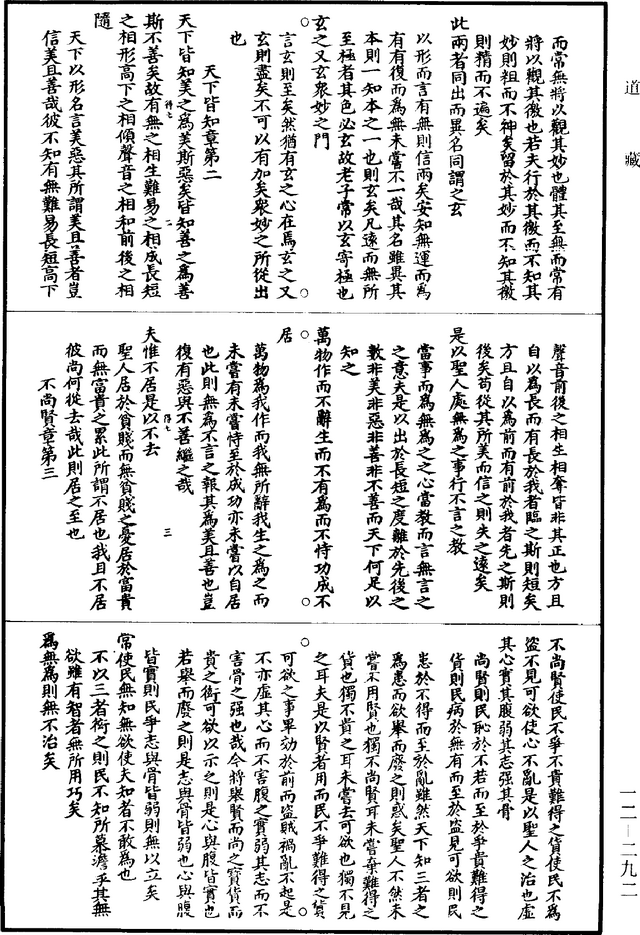 道藏
而常無將以觀其妙也體其至無而常有
將以觀其徼也若夫行於其徼而不知其
妙則粗而不神矣留於其妙而不知其徼
則精而不遍矣
此兩者同出而異名同謂之玄
以形而言有無則信兩矣安知無運而為
有有復而為無未嘗不一哉其名雖異其
本則一知本之一也則玄矣凡遠而無所
至極者其色必玄故老子常以玄寄極也
玄之又玄衆妙之門
言玄則至矣然猶有玄之心在焉玄之又
玄則盡矣不可以有加矣衆妙之所從出
也
天下皆知章第二
天下皆知美之爲美斯惡矣皆知善之爲善
斯不善矣故有無之相生難易之相成長短
之相形高下之相傾聲音之相和前後之相
隨
天下以形名言美惡其所謂美且善者豈
信美且善哉彼不知有無難易長短高下
聲音前後之相生相奪皆非其正也方且
自以爲長而有長於我者臨之斯則短矣
方且自以爲前而有前於我者先之斯則
後矣苟從其所美而信之則失之遠矣
是以聖人處無爲之事行不言之教
當事而爲無爲之之心當教而言無言之
之意夫是以出於長短之度離於先後之
數非美非惡非善非不善而天下何足以
知之
萬物作而不辭生而不有爲而不恃功成不
居
萬物爲我作而我無所辭我生之爲之而
未嘗有未嘗恃至於成功亦未嘗以自居
也此則無爲不言之報其爲美且善也豈
復有惡與不善繼之哉
夫惟不居是以不去
聖人居於貧賤而無貧賤之憂居於富貴
而無富貴之累此所謂不居也我且不居
彼尚何從去哉此則居之至也
不尚賢章第三
不尚賢使民不爭不貴難得之貨使民不爲
盜不見可欲使心不亂是以聖人之治也虛
其心實其腹弱其志强其骨
尚賢則民恥於不若而至於爭貴難得之
貨則民病於無有而至於盜見可欲則民
患於不得而至於亂雖然天下知三者之
爲患而欲舉而廢之則惑矣聖人不然未
嘗不用賢也獨不尚賢耳未嘗棄難得之
貨也獨不貴之耳未嘗去可欲也獨不見
之耳夫是以賢者用而民不爭難得之貨
可欲之事畢効於前而盜賊禍亂不起是
不亦虛其心而不害腹之實弱其志而不
害骨之强也哉今將舉賢而尚之寶貨而
貴之衒可欲以示之則是心與腹皆實也
若舉而廢之則是志與骨皆弱也心與腹
皆實則民爭志與骨皆弱則無以立矣
常使民無知無欲使夫知者不敢爲也
不以三者衒之則民不知所慕澹乎其無
欲雖有智者無所用巧矣
爲無爲則無不治矣
一二—二九二